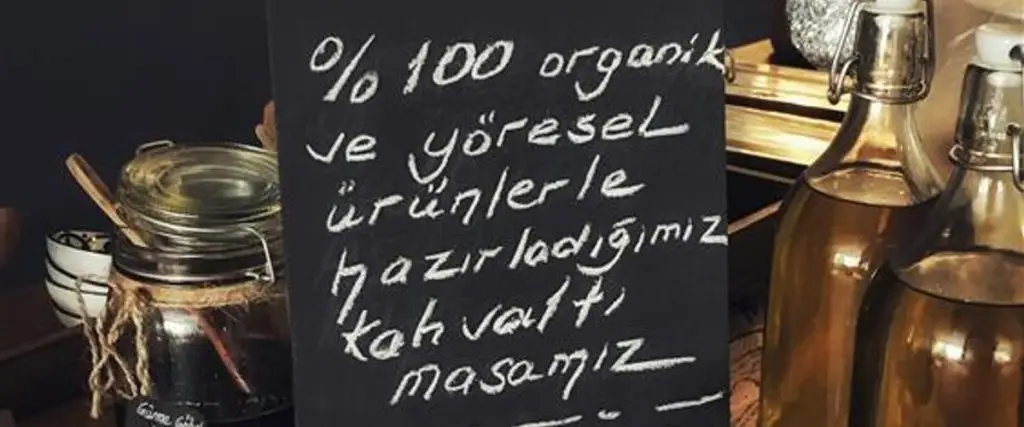 % 100 organik
ve yöresel
ürünlerle
hazırladığımız
kahvaltı
masamız